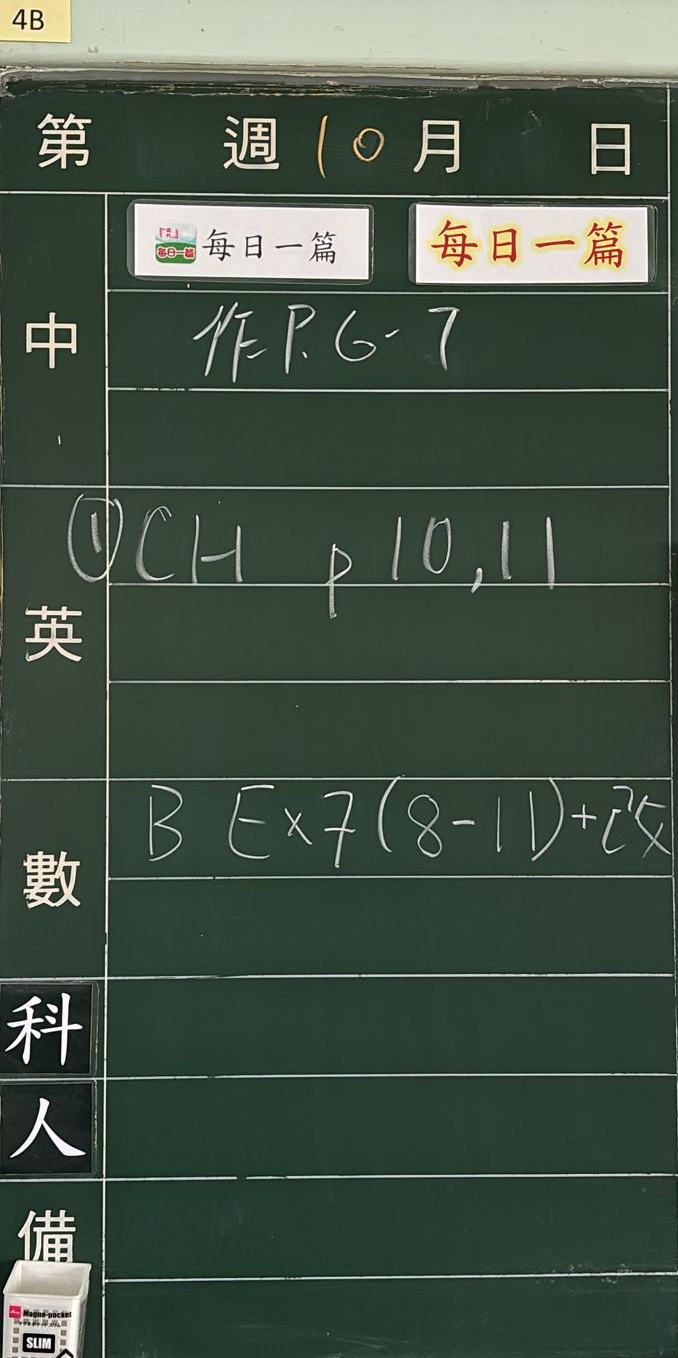 4B
第 週 10 月 日
每日一篇 每日一篇 每日一篇
中
作 P. 6-7
① CH p 10, 11
英
B Ex 7 (8-11) + 改
數
科
人
備
Magne-pocket
SLIM